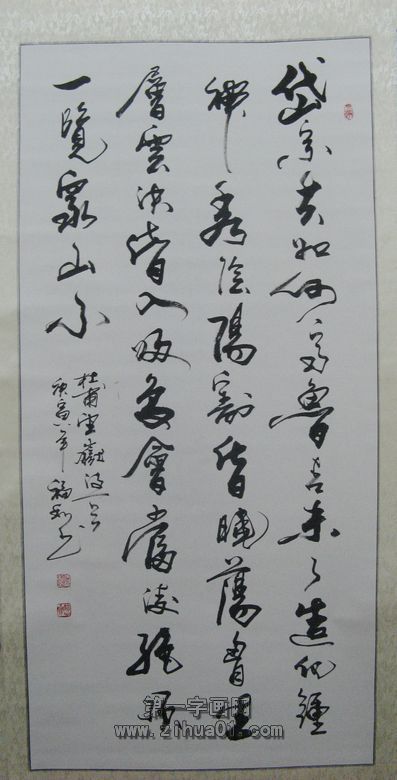 岱宗夫如何齊魯青未了造化鍾
神秀陰陽割昏曉蕩胸生
層雲決眥入歸鳥會當凌絕頂
一覽眾山小
杜甫望嶽詩一首
庚寅年福利书
第一字画网
www.zihua01.com